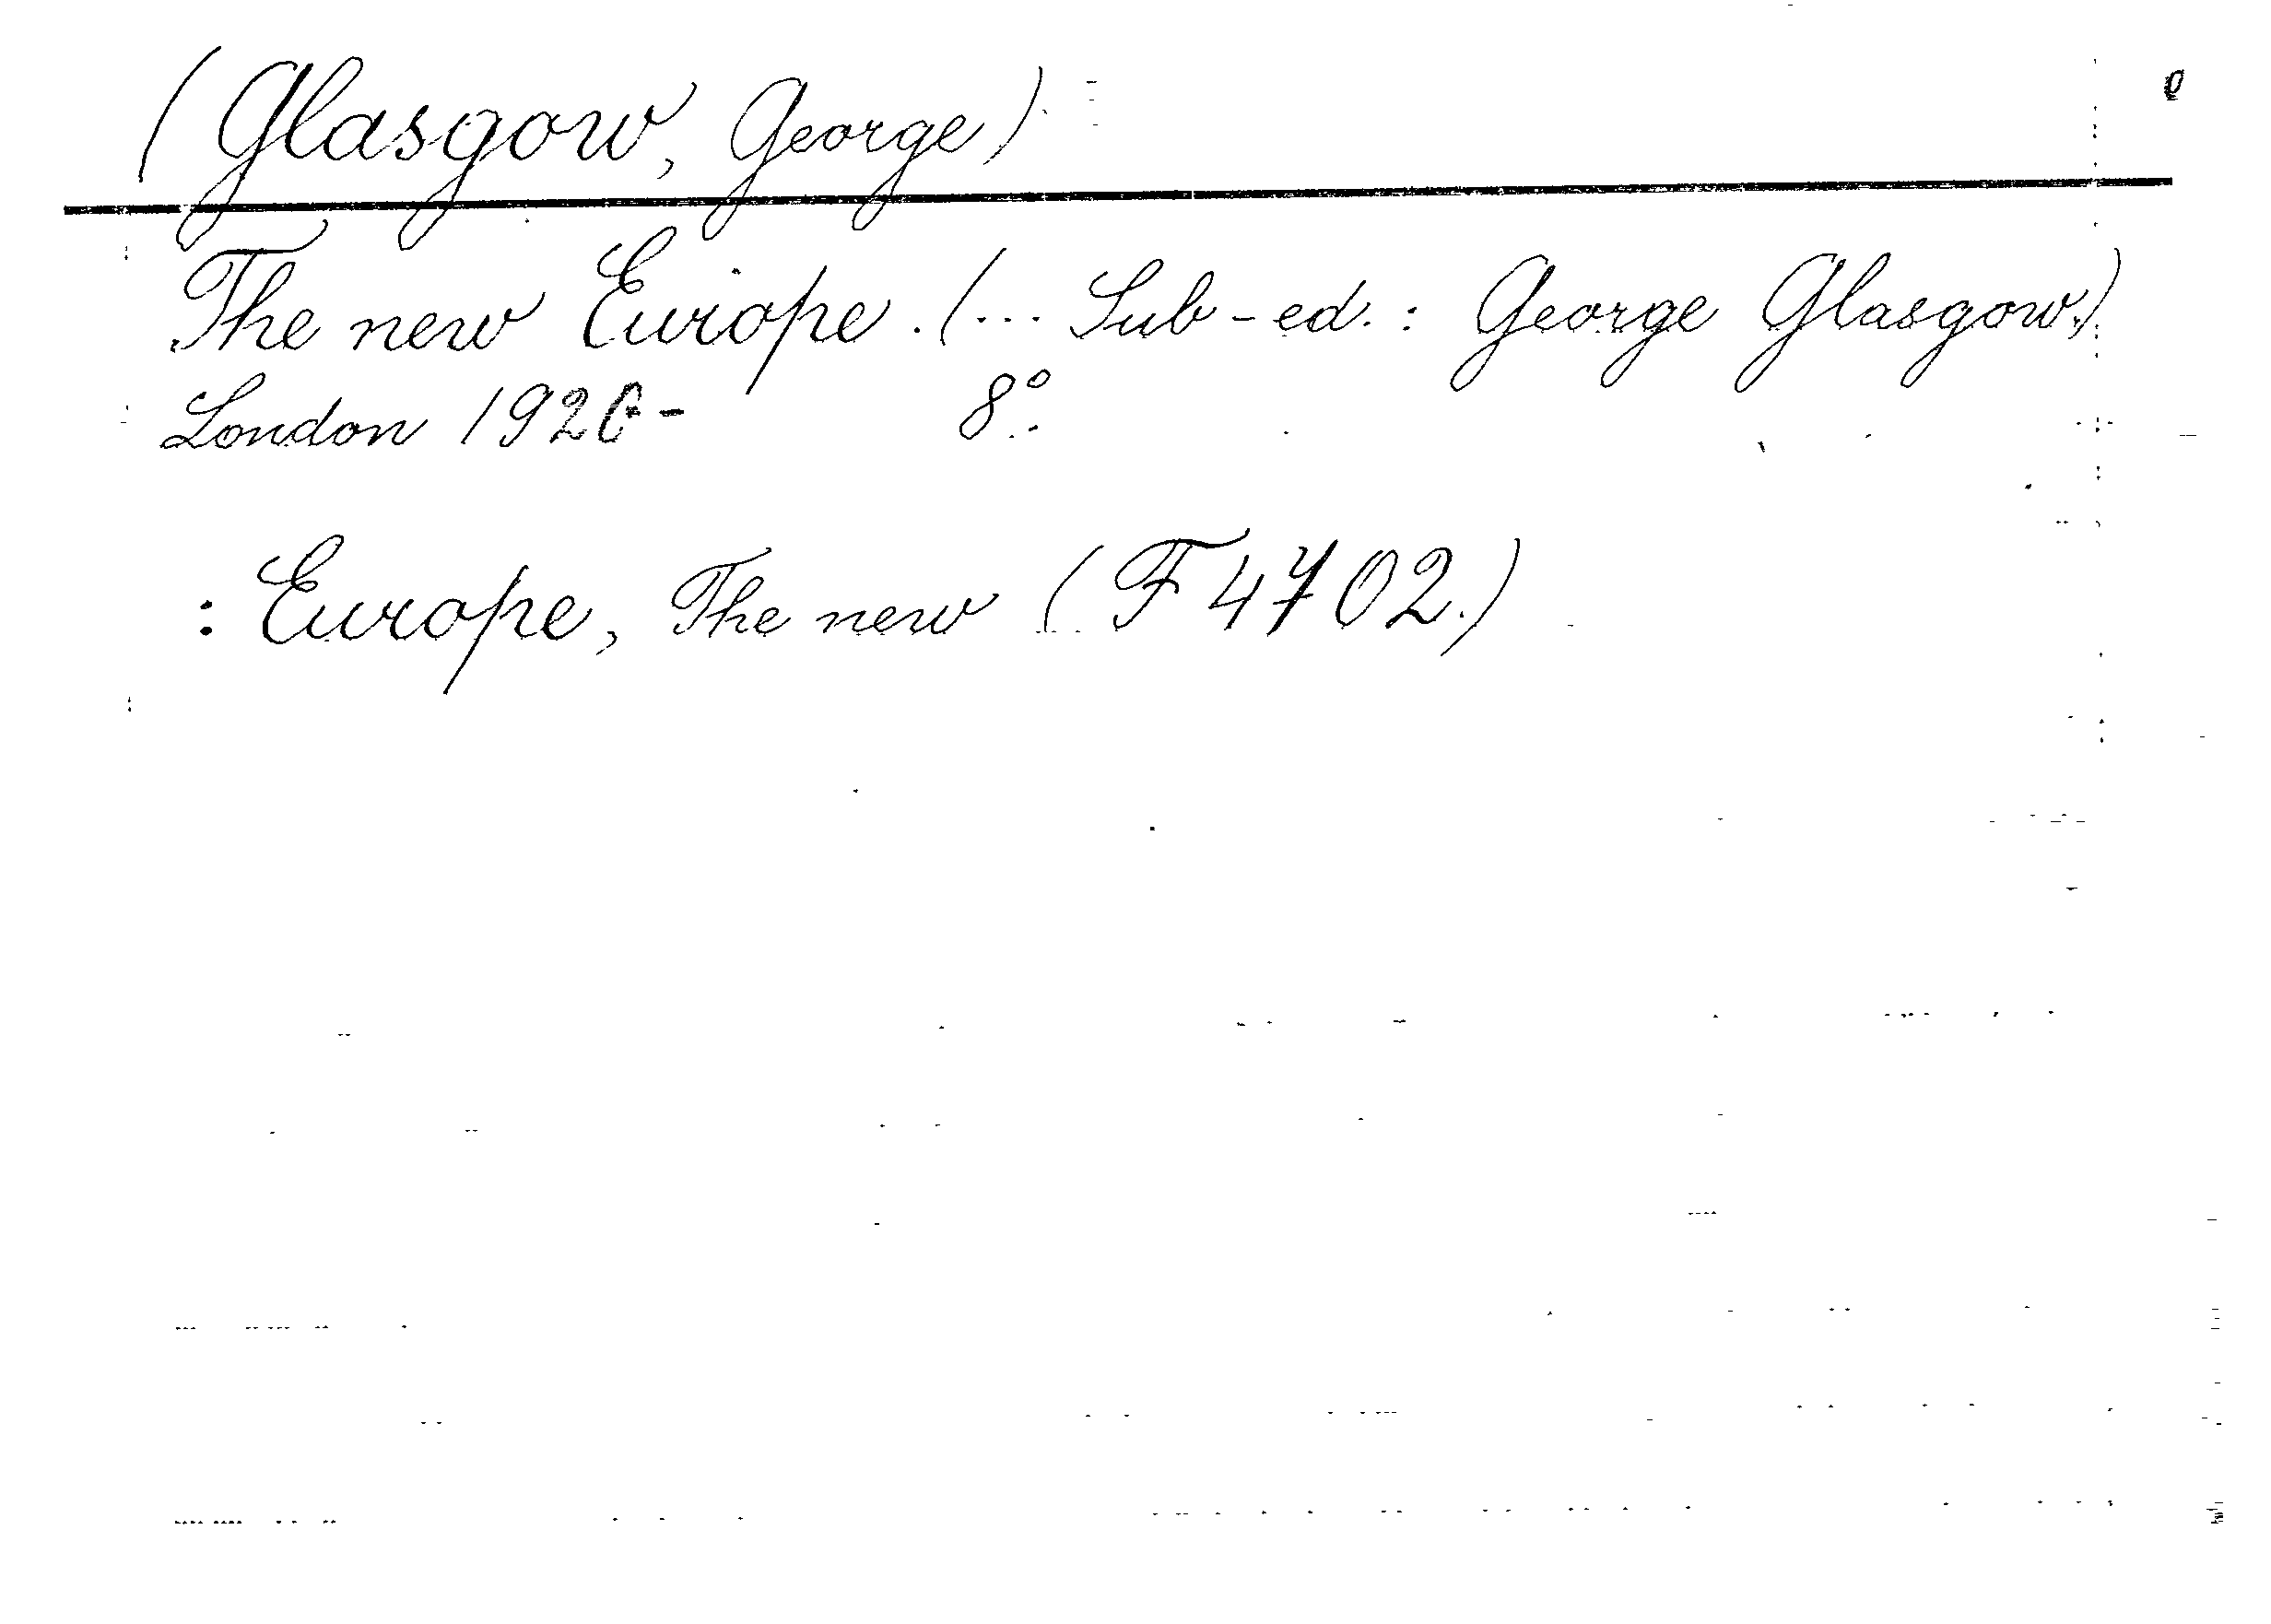 (Glasgow, George)
The new Europe. (... Sub-ed.: George Glasgow.)
London 1920- 8°.
: Europe, The new (F 4702.)